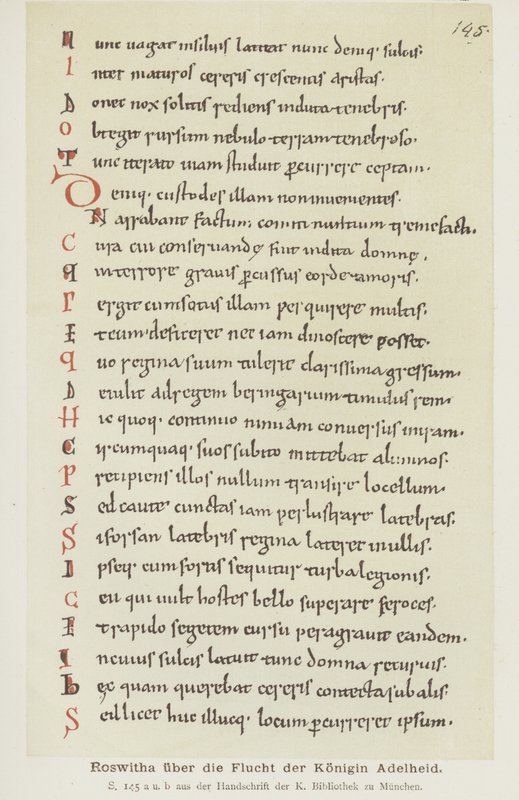 145.
Nunc uagat insiluis latitat nunc deniq· sulcis·
Inter maturos cereris crescentis aristas·
Donec nox solitis rediens induta tenebris·
Obtegit rursum nebulo terram tenebroso·
Tunc iterato uiam studuit ꝑcurrere ceptam·
Deniq; custodes illam non inuenientes·
Narrabant factum; comiti nimium tremefacti·
Cura cui conseruandę fuit indita domnę,
Qui terrore grauis ꝑcussus corde timoris·
Pergit cum sotiis illam perquirere multis·
Et cum deficeret nec iam dinoscere posset·
Quo regina suum tulerit clarissima gressum·
Detulit ad regem beringarium timidus rem·
Hic quoq· continuo nimiam conuersus in iram·
Circumquaq; suos subito mittebat alumnos·
Precipiens illos nullum transire locellum·
Sed caute cunctas iam perlustrare latebras·
Si forsan latebris regina lateret in ullis·
Ipseq· cum fortis sequitur turba legionis·
Ceu qui uult hostes bello superare feroces·
Et rapido segetem cursu peragrauit eandem·
In cuius sulcis latuit tunc domna recuruis·
Hęc quam querebat cereris contecta sub alis·
Sed licet huc illucq· locum ꝑcurreret ipsum·
Roswitha über die Flucht der Königin Adelheid.
S. 145 a u. b aus der Handschrift der K. Bibliothek zu München.